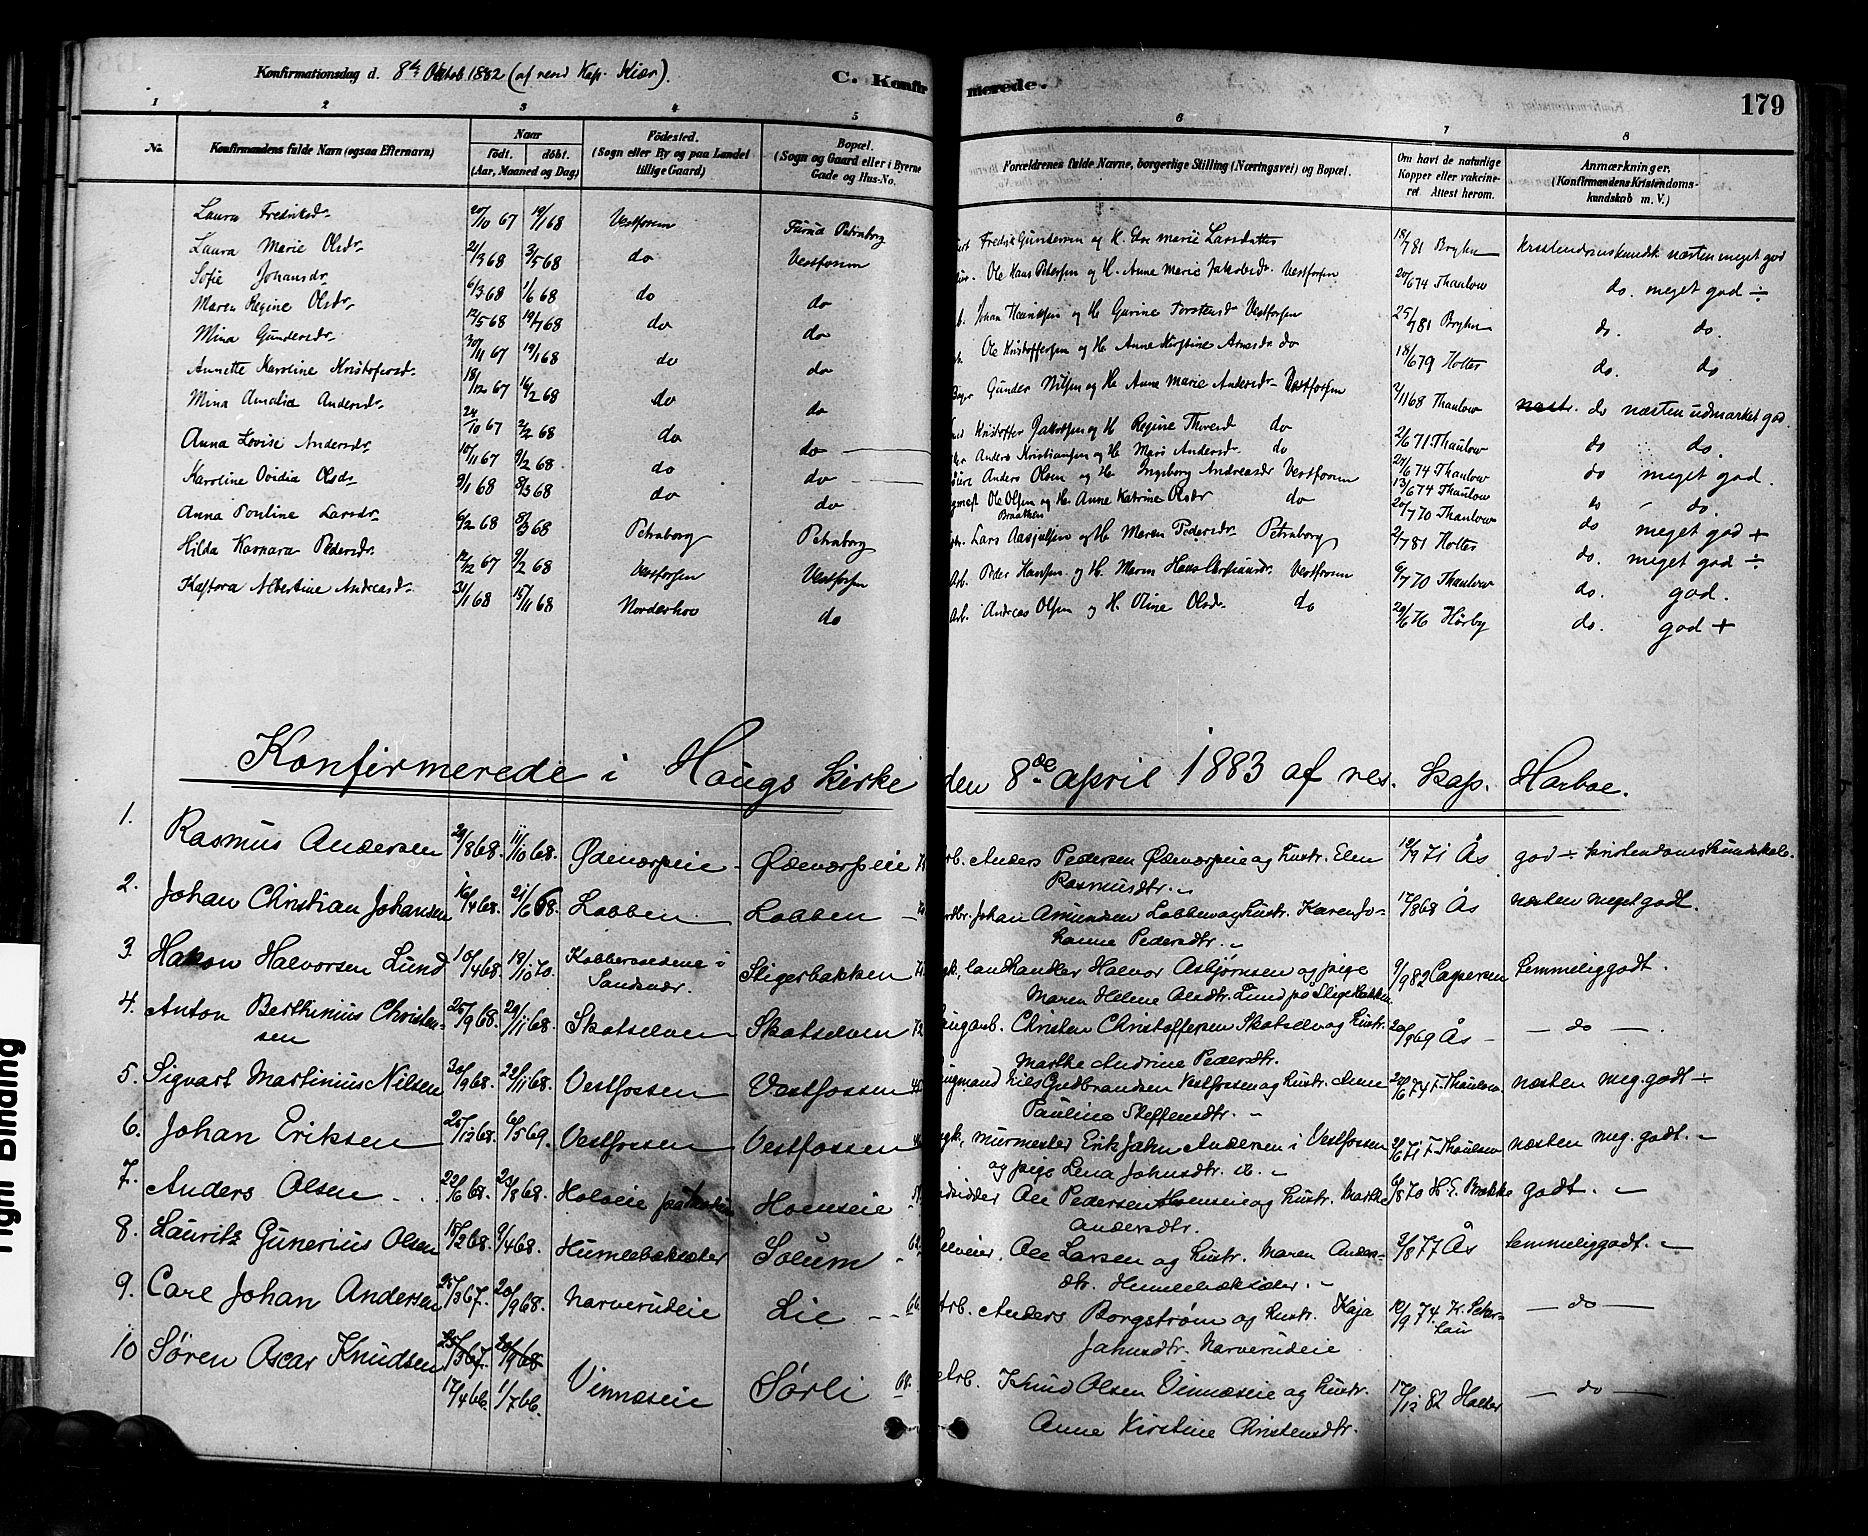 Konfirmationsdag d. 8de Oktob 1882 (af resd Kap. Kiær).
C. Konfirmerede.
179
1 2 3 4 5 6 7 8
No. Konfirmandens fulde Navn (ogsaa Efternavn) Naar födt. döbt. (Aar, Maaned og Dag) Födested. (Sogn eller By og paa Landet tillige Gaard) Bopæl. (Sogn og Gaard eller i Byerne Gade og Hus-No. Forældrenes fulde Navne, borgerlige Stilling (Næringsvei) og Bopæl. Om havt de naturlige Kopper eller vakcineret. Attest herom. Anmærkninger. (Konfirmandens Kristendomskundskab m. V.)
Laura Fredriksdr. 20/10 67 19/1 68 Vestfossen Furud Petraborg Fredrik Gundersen og H. Marie Larsdatter 18/7 81 Bryhn kristendomskundsk næsten meget god
Laura Marie Olsdr. 21/3 68 3/5 68 do Vestfossen Ole Hans Petersen og H. Anne Marie Jakobsdr. Vestfossen 20/6 74 Thaulow do. meget god ÷
Sofie Johansdr. 6/3 68 1/6 68 do do Johan Henriksen og H. Gurine Torstensdr Vestfossen 25/7 81 Bryhn do. do.
Maren Regine Olsdr. 12/5 68 19/7 68 do do Ole Kristoffersen og H. Anne Kirstine Arnesdr do 18/6 79 Holter do. do.
Mina Gundersdr. 30/11 67 19/1 68 do do Gunder Nilsen og H. Anne Marie Andersdr. Vestfossen 2/11 68 Thaulow do næsten udmærket god.
Annette Karoline Kristofersdr. 18/12 67 16/2 68 do do Kristoffer Jakobsen og H. Regine Thoresd do 2/6 71 Thaulow do do.
Mina Amalia Andersdr. 24/10 67 2/2 68 do do Anders Kristiansen og H. Mari Andersdr. do 24/6 74 Thaulow do meget god.
Anna Lovise Andersdr. 10/11 67 9/2 68 do do Anders Olsen og H. Ingeborg Andreasdr Vestfossen 13/6 74 Thaulow do do.
Karoline Ovidia Olsdr. 9/1 68 8/3 68 do do Ole Olsen Braathen og H. Anne Katrine Olsdr do 20/7 70 Thaulow do meget god +
Anna Pouline Larsdr. 6/2 68 8/3 68 Petraborg Petraborg Lars Aasjulsen og H. Maren Pedersdr. Petraborg 2/7 81 Holter do. meget god ÷
Hilda Kaspara Pedersdr. 12/12 67 9/2 68 Vestfossen Vestfossen Arb. Peder Hansen og H. Maren Vestfossen 6/7 70 Thaulow do. god.
Kastora Albertine Andreasd. 31/1 68 15/11 68 Norderhov do Arb. Andreas Olsen og H. Oline Olsdr. do 20/6 76 Hörby do. god +
Konfirmerede i Haugs Kirke den 8de april 1883 af res. Kap. Harboe.
1. Rasmus Andersen 29/8 68. 11/10 68. Ødeværpeie Ødeværpeie Arb. Anders Pedersen Ødeværpeie og hustr. Elen 19/7 71 Ås god ÷ kristendomskundskab.
Rasmusdtr.
2. Johan Christian Johansen 16/4 68. 21/6 68. Lobben Lobben Johan Amundsen Lobben og hustr. Karen Jo- 17/8 68 Ås næsten meget godt.
hanne Pedersdtr.
3. Hakon Halvorsen Lund 10/4 68. 18/10 70. Kobbervoldene i Stigerbakken landhandler Halvor Asbjørnsen og pige 9/9 82 Caspersen temmelig godt.
Sandsvær. Maren Helene Olsdtr. Lund på Stigerbakken
4. Anton Berthinius Christen- 25/9 68. 29/11 68. Skotselven Skotselven Christen Christoffersen Skotselv og hustr. 20/9 69 Ås — do —.
sen Marthe Andrine Pedersdtr.
5. Sigvart Martinius Nilsen 30/9 68. 22/11 68. Vestfossen Vestfossen Nils Gudbrandsen Vestfossen og hustr. Anne 20/6 74 F. Thaulow næsten meg. godt ÷
Pauline Steffensdtr.
6. Johan Eriksen 25/12 68. 6/5 69. Vestfossen Vestfossen murmester Erik John Andersen i Vestfossen 2/6 71 F. Thaulow næsten meg. godt.
og pige Lena Johnsdtr. ib.
7. Anders Olsen 22/6 68. 23/8 68. Holseie Hoenseie Ole Pedersen Hoenseie og hustr. Marthe 6/8 70 H. E. Brække godt.
Andersdtr.
8. Lauritz Gunerius Olsen 15/2 68. 9/4 68. Humlebæksæter Solum Ole Larsen og hustr. Maren Anders- 2/8 77 Ås temmelig godt.
dtr. Humlebæksæter.
9. Carl Johan Andersen 25/3 67. 20/9 68. Narverudeie Lie Arb. Anders Borgstrøm og hustr. Kaja 10/9 74. — do —
Johnsdtr. Narverudeie
10 Søren Oscar Knudsen 25/3 67. 20/9 68 Vinnæseie Sørli Arb. Knud Olsen Vinnæseie og hustr. 17/12 82 Holter — do —
17/4 66. 1/7 66. Anne Kirstine Christensdtr.
Tight Binding